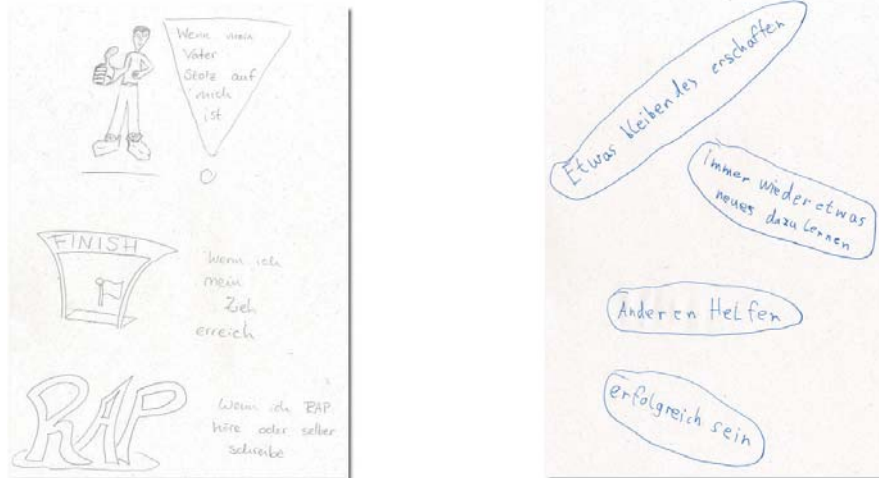 Wenn mein
Vater
Stolz auf
mich
ist
FINISH
Wenn ich
mein
Zieh
erreich
RAP
Wenn ich RAP
höre oder selber
schreibe
Etwas bleibendes erschaffen
Immer wieder etwas
neues dazu Lernen
Anderen Helfen
erfolgreich sein